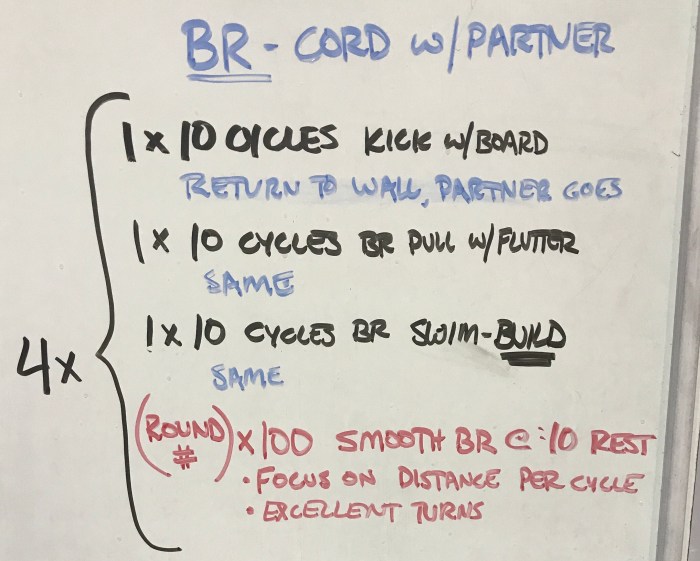 BR - CORD W/PARTNER
1 x 10 CYCLES KICK W/BOARD
RETURN TO WALL, PARTNER GOES
1 x 10 CYCLES BR PULL W/FLUTTER
SAME
1 x 10 CYCLES BR SWIM-BUILD
SAME
4x
(ROUND #) x 100 SMOOTH BR @ :10 REST
• FOCUS ON DISTANCE PER CYCLE
• EXCELLENT TURNS